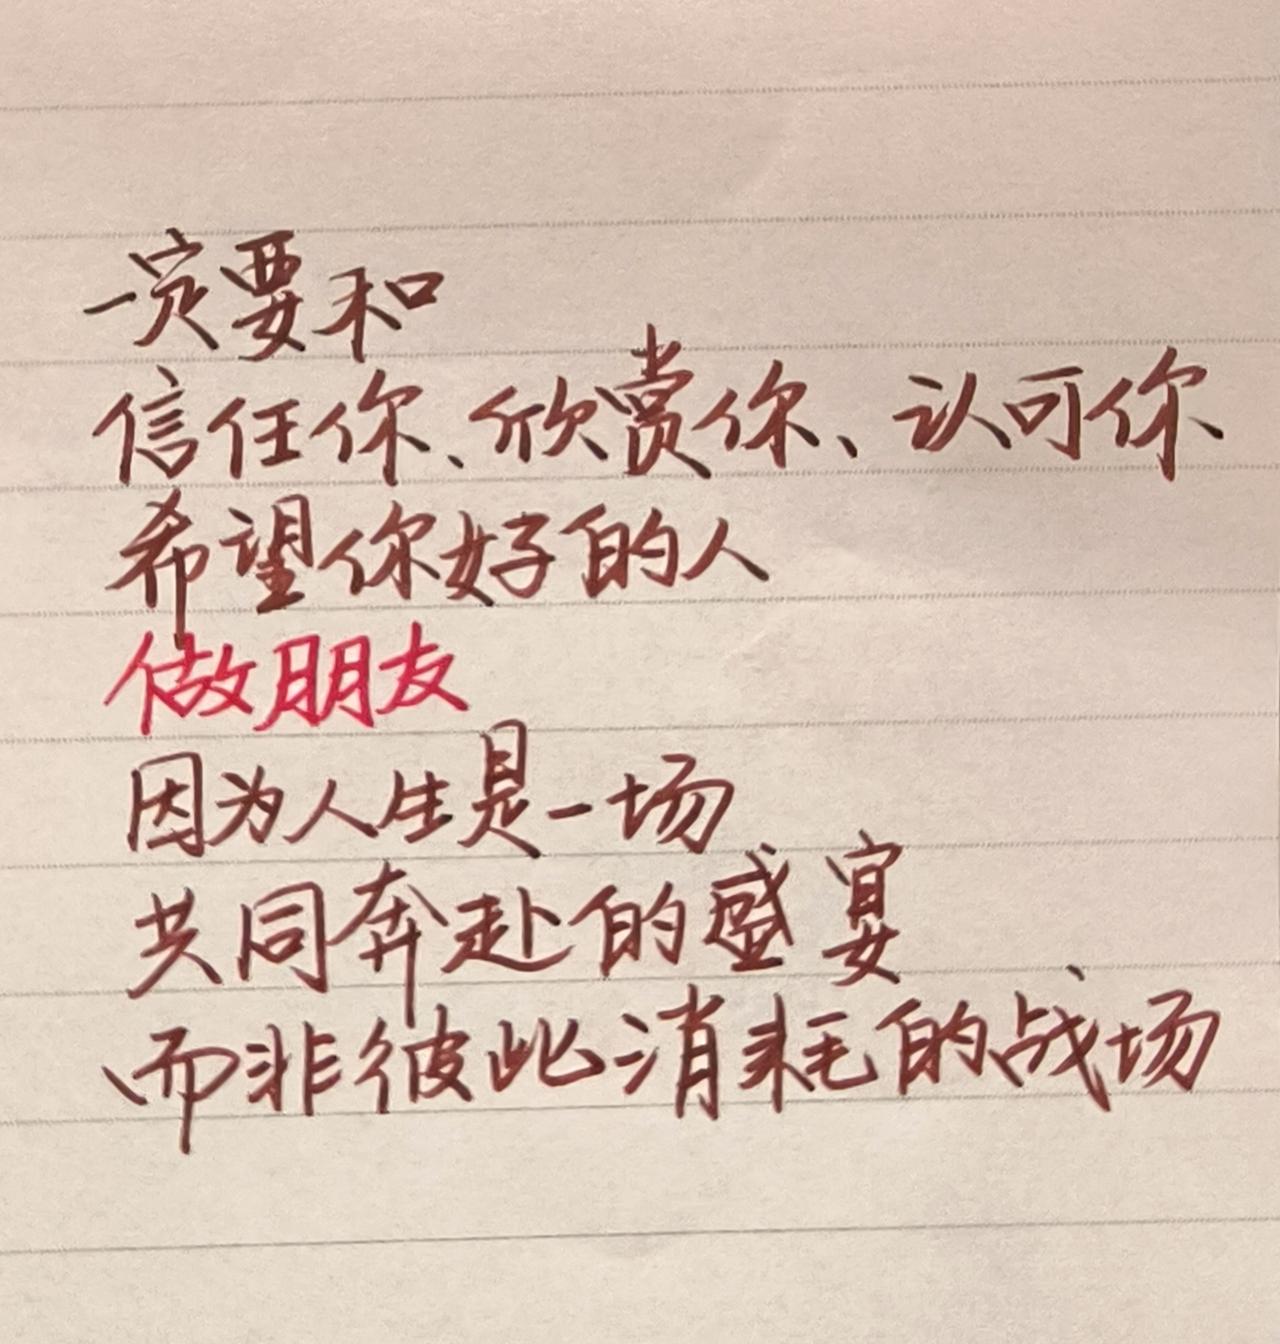 一定要和
信任你、欣赏你、认可你
希望你好的人
做朋友
因为人生是一场
共同奔赴的盛宴
而非彼此消耗的战场